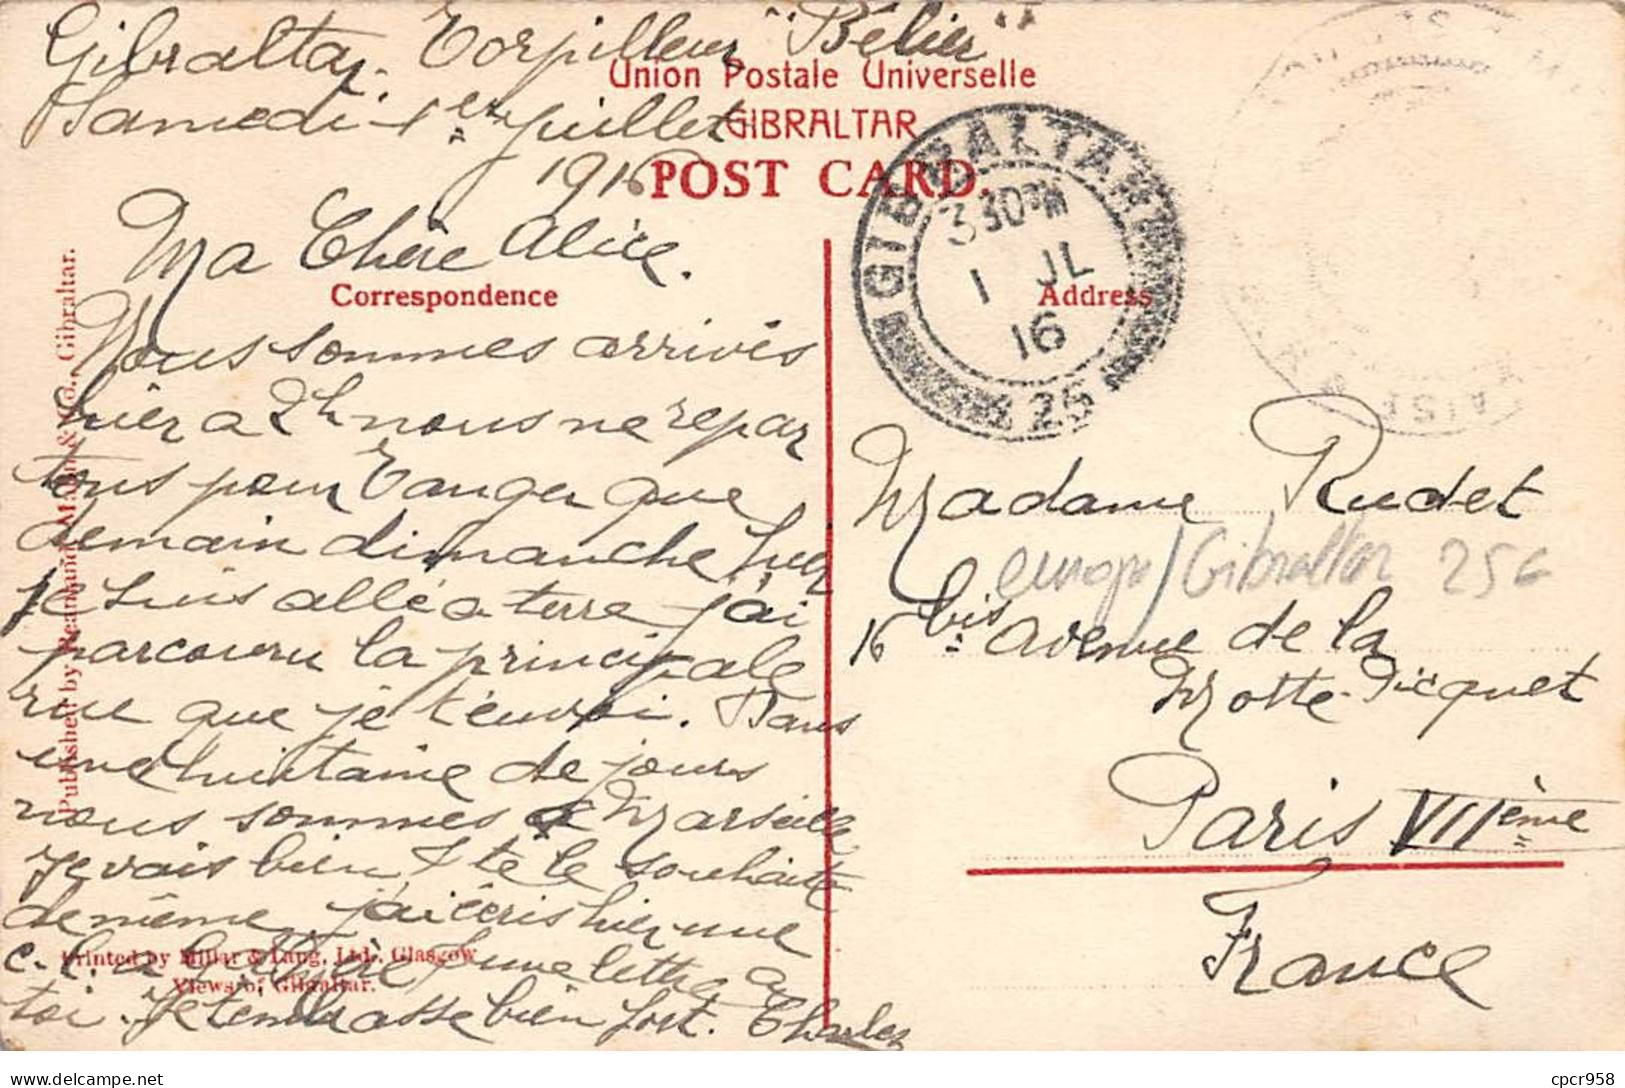 Gibraltar. Torpilleur "Bélier"
Union Postale Universelle
Samedi 1er Juillet
GIBRALTAR
1916
POST CARD.
GIBRALTAR
3 30 PM
1 JL
16
25
Ma Chère Alice.
Correspondence
Address
Nous sommes arrivés
hier a 2h nous ne repar
tons pour Tanger que
demain dimanche hier
je suis allé a terre j'ai
parcouru la principale
rue que je t'envoi. Dans
une huitaine de jours
nous sommes a Marseille
Je vais bien & te le souhaite
de même j'ai écris hier une
c. l. a et une lettre a
toi. Je t'embrasse bien fort. Charles
Madame Rudet
europe/Gibraltar 25€
16 bis avenue de la
Motte-Picquet
Paris VIIème
France
Published by Beanland, Malin & Co., Gibraltar.
Printed by Millar & Lang, Ltd., Glasgow
Views of Gibraltar.
delcampe.net
cpcr958